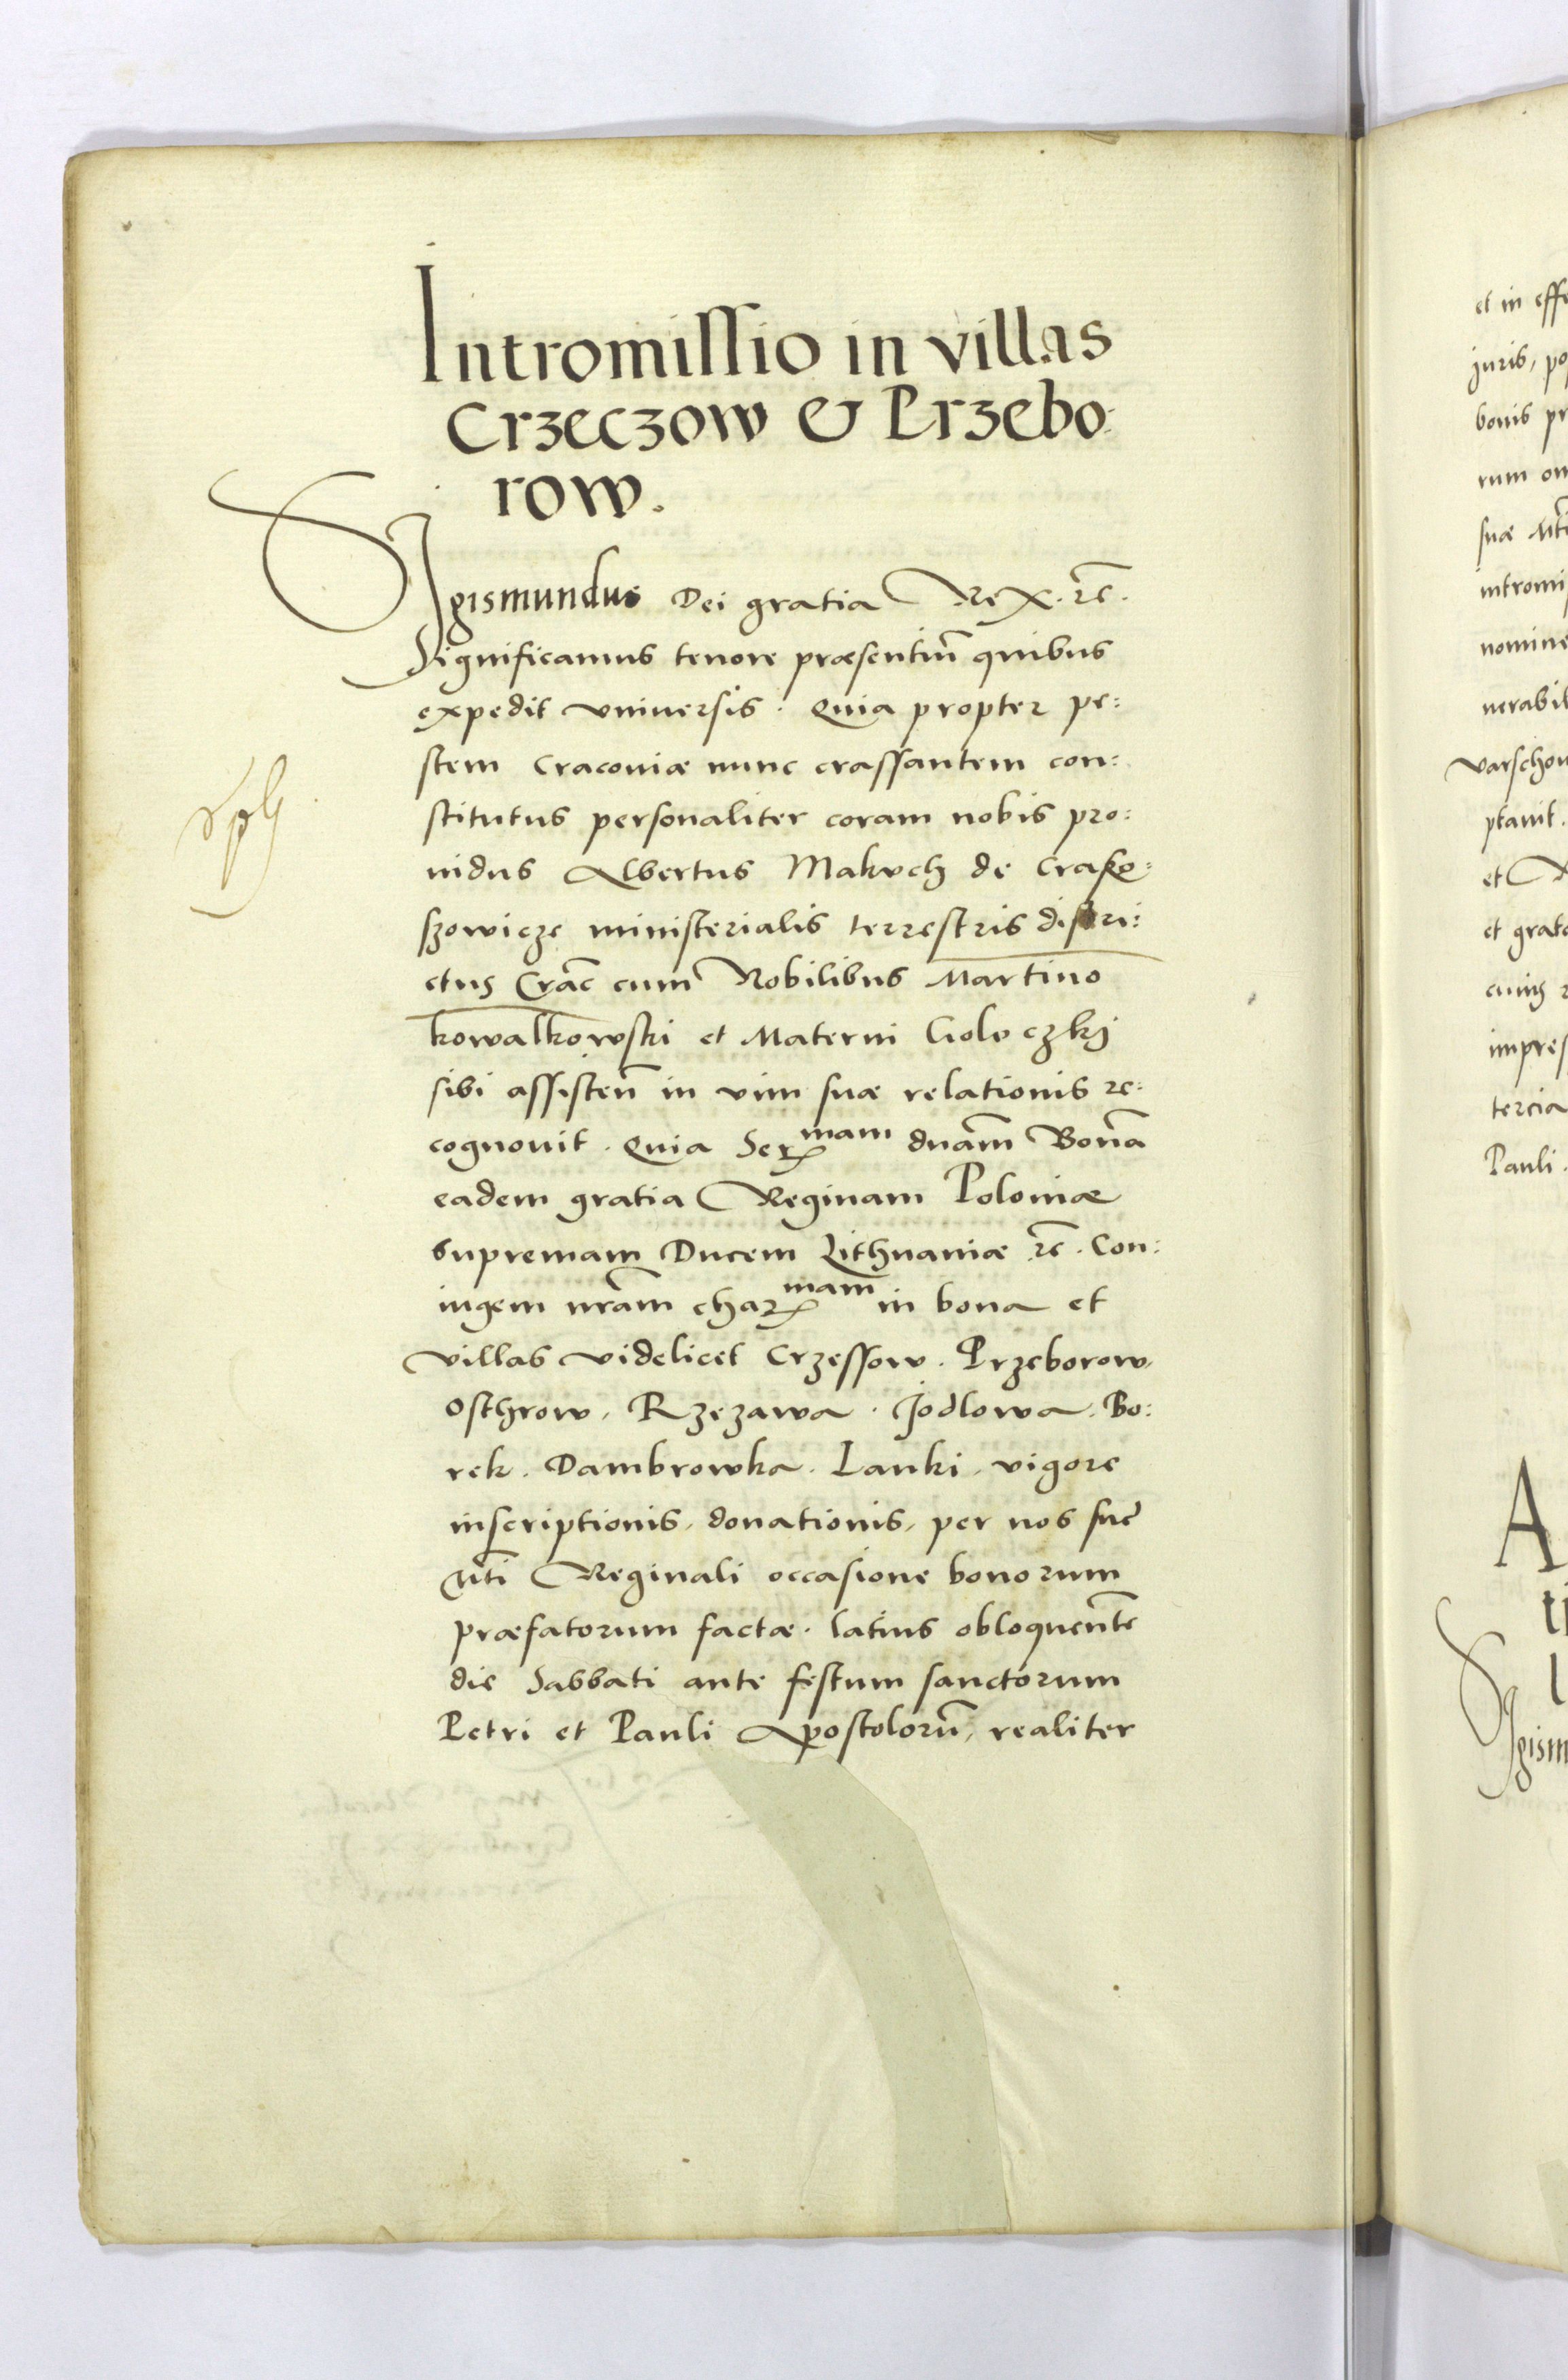 Intromissio in villas
Crzeczow & Przebo-
row.
Sigismundus Dei gratia Rex. rc̄.
Significamus tenore præsentiū quibus
expedit vniuersis. Quia propter pe:
stem Craconiæ nunc crassantem con:
stitutus personaliter coram nobis pro:
uidus Albertus Makuch de Crasko:
szowicze ministerialis terrestris distri:
ctus Crac̄ cum Nobilibus Martino
Kowalkowski et Materni Goluczkj
sibi assisten̄ in vim suæ relationis re:
cognouit. Quia Ser mam dnam̄ Bonā
eadem gratia Reginam Poloniæ
supremam Ducem Lithuaniæ rc̄. Con:
iugem nram̄ char mam in bona et
villas videlicet Crzessow. Przeborow.
Osthrow. Rzezawa. Jodlowa. Bo:
rek. Dambrowka. Lanki. vigore
inscriptionis, donationis, per nos suę
Mti̅ Reginali occasione bonorum
præfatorum factæ. latius obloquen̄te
die Sabbati ante festum sanctorum
Petri et Pauli Apostolorū, realiter
et in effe
juris, po
bonis pr
rum om
suæ Mt̄
intromi
nomine
nerabil
Varschou
ptauit.
et
et grat
cuius
impres
tercia
Pauli.
A
ti
l
Sigism